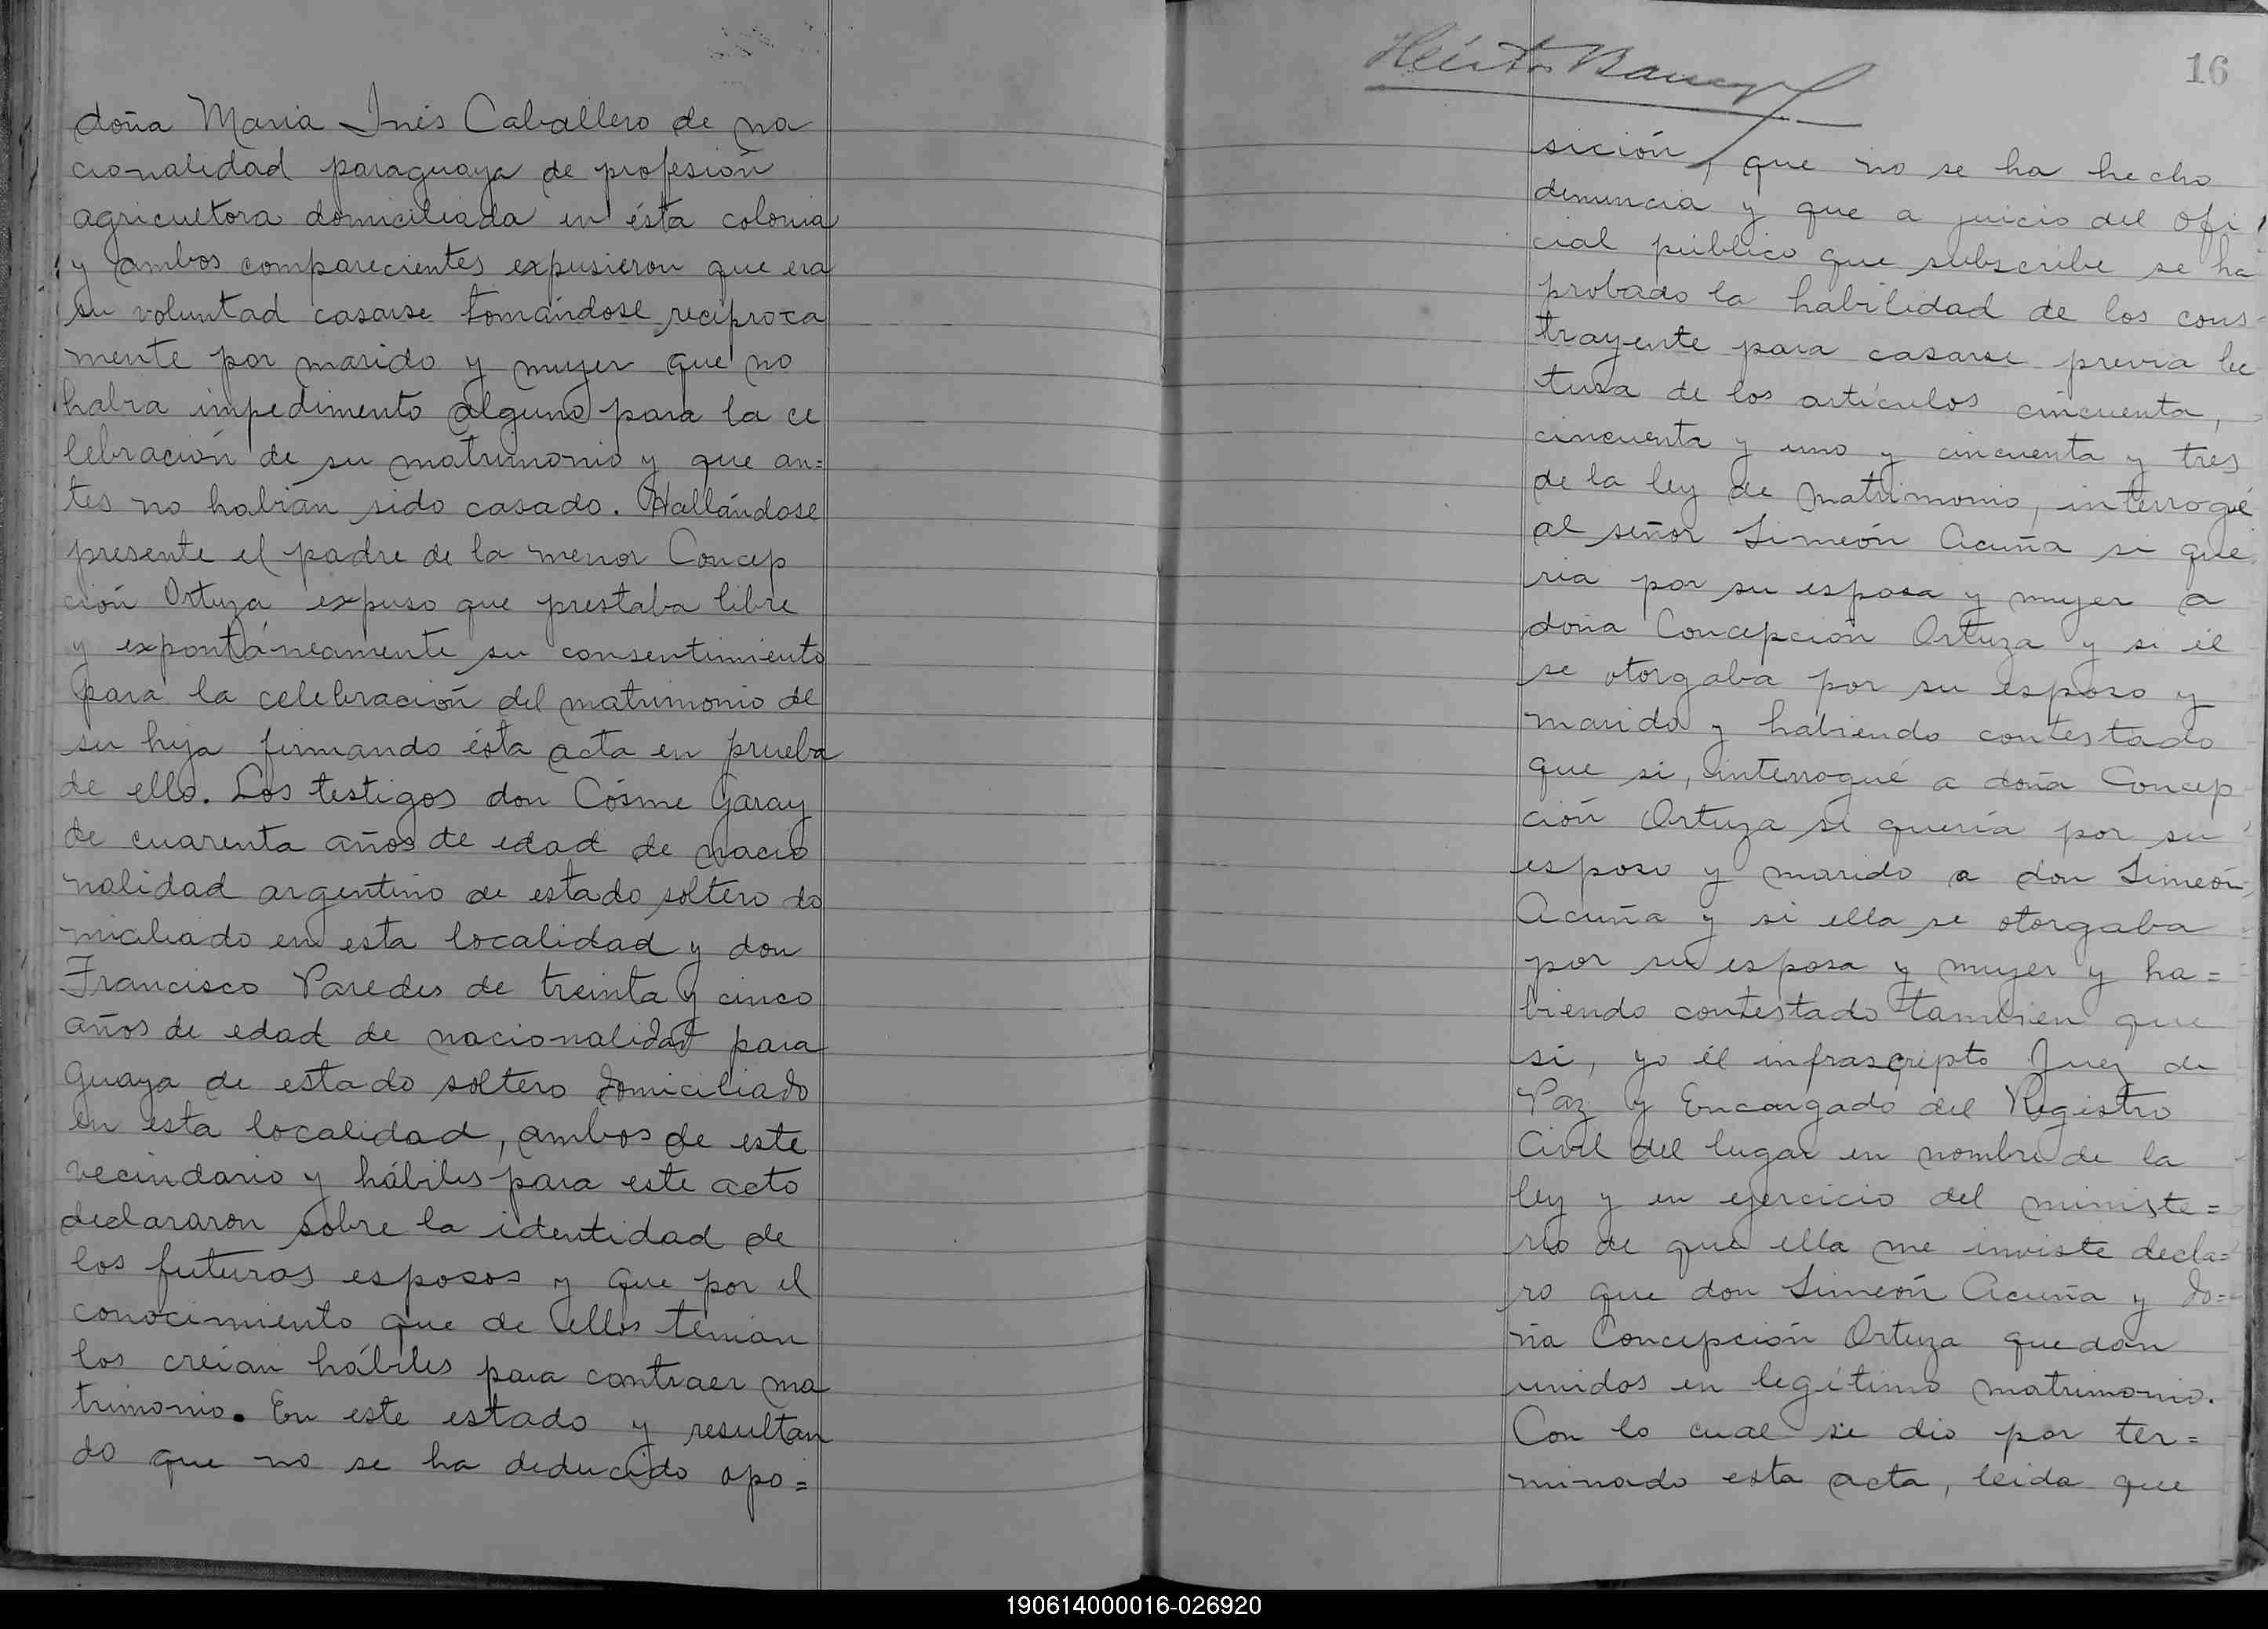 doña Maria Inés Caballero de na
cionalidad paraguaya de profesión
agricultora domiciliada en ésta colonia
y ambos comparecientes expusieron que era
su voluntad casarse tomándose reciproca
mente por marido y mujer que no
habia impedimento alguno para la ce
lebración de su matrimonio y que an=
tes no habian sido casado. Hallándose
presente el padre de la menor Concep
ción Ortuza expuso que prestaba libre
y expontáneamente su consentimiento
para la celebración del matrimonio de
su hija firmando ésta acta en prueba
de ello. Los testigos don Cósme Garay
de cuarenta años de edad de nacio
nalidad argentino de estado soltero do
miciliado en esta localidad y don
Francisco Paredes de treinta y cinco
años de edad de nacionalidad para
guaya de estado soltero domiciliado
en esta localidad, ambos de este
vecindario y hábiles para este acto
declararon sobre la identidad de
los futuros esposos y que por el
conocimiento que de ellos tenian
los creian hábiles para contraer ma
trimonio. En este estado y resultan
do que no se ha deducido opo=
Héctor
16
sición, que no se ha hecho
denuncia y que a juicio del ofi
cial público que subscribe se ha
probado la habilidad de los cons-
trayente para casarse previa lec
tura de los artículos cincuenta,
cincuenta y uno y cincuenta y tres
de la ley de matrimonio, interrogé
al señor Simeón Acuña si que
ria por su esposa y mujer a
doña Concepción Ortuza y si él
se otorgaba por su esposo y
marido y habiendo contestado
que si, interrogué a doña Concep
ción Ortuza si quería por su
esposo y marido a don Simeón
Acuña y si ella se otorgaba
por su esposa y mujer y ha=
biendo contestado tambien que
si, yo él infrascripto Juez de
Paz y Encargado del Registro
Civil del lugar en nombre de la
ley y en ejercicio del ministe=
rio de que ella me inviste decla=
ro que don Simeón Acuña y do=
ña Concepción Ortuza quedan
unidos en legítimo matrimonio.
Con lo cual se dio por ter=
minado esta acta, leida que
190614000016-026920